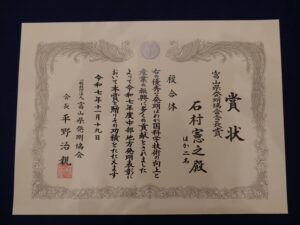 賞状
富山県発明協会会長賞
石村憲之殿
ほか二名
役合体
右は優秀な発明を行われ科学技術の向上と
産業の振興に多くの貢献をされました
よって令和七年度中部地方発明表彰に
おいて本賞を贈りその功績をたたえます
令和七年十一月十九日
一般社団法人 富山県発明協会
会長 平野治親